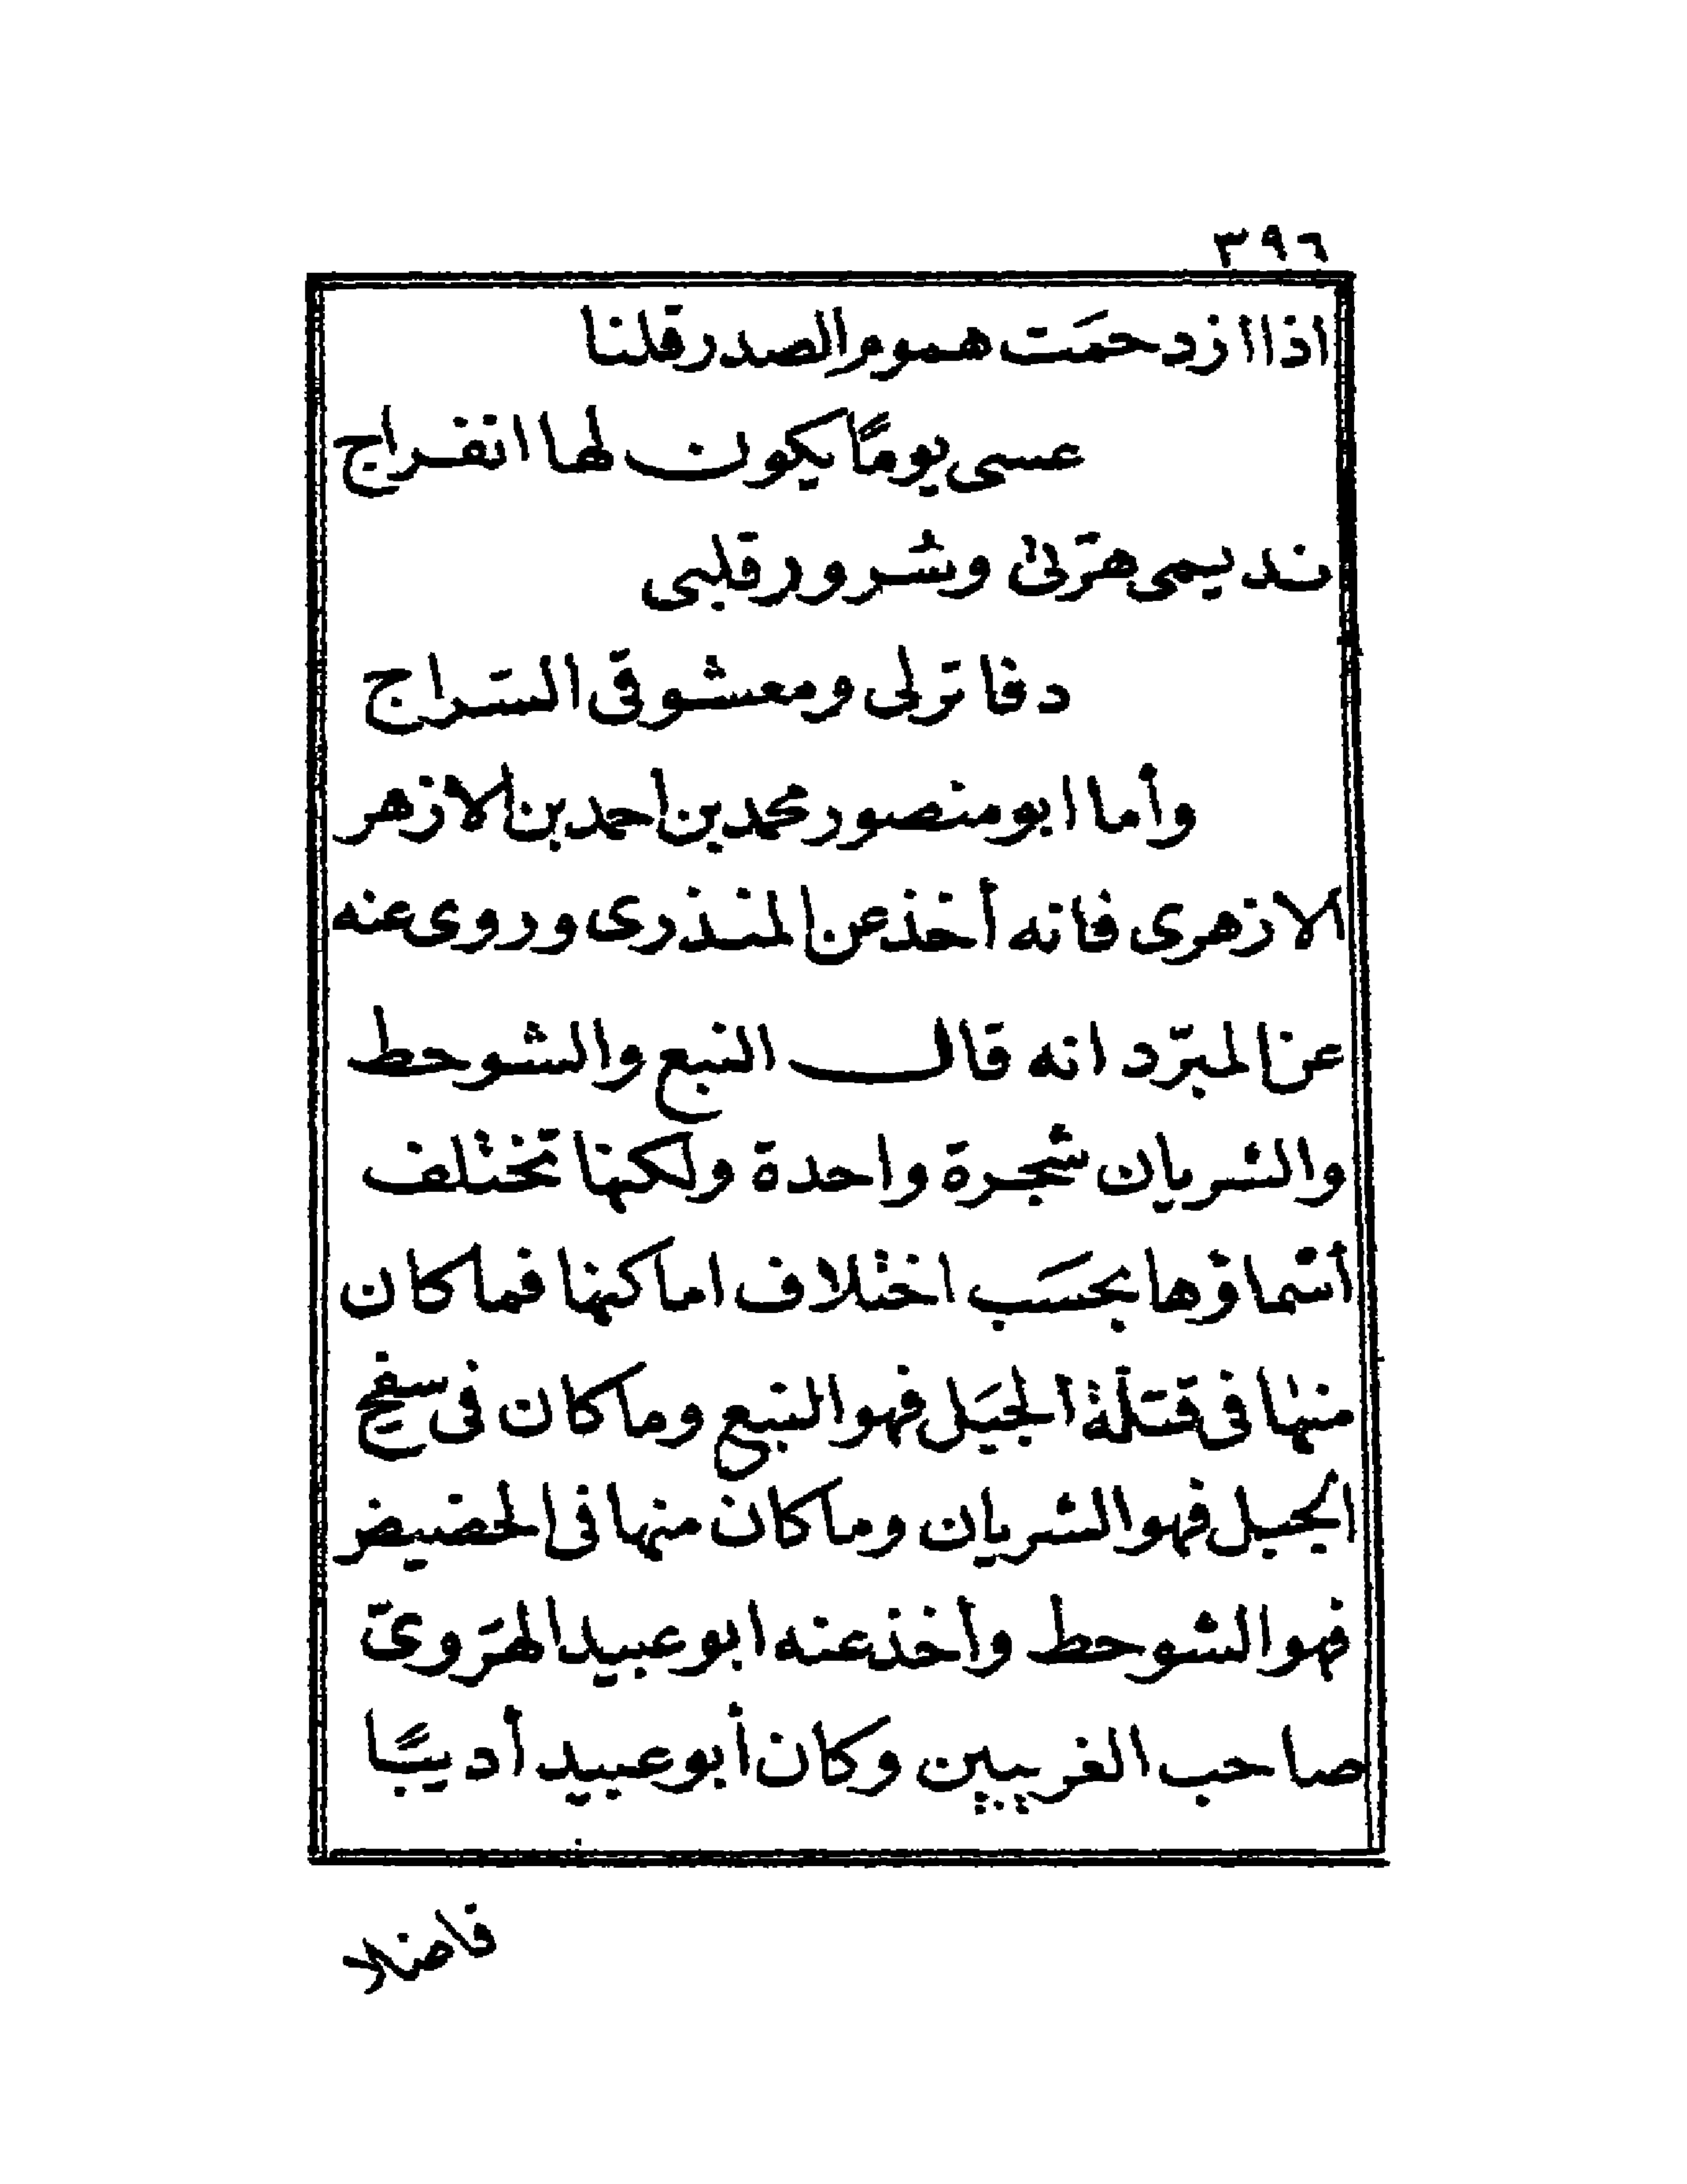 ٣٩٦
اذا ازدحمَت هموم الصدر قلنا
عسى يومًا يكون لها انفراج
نديمى هرّتى وسرور قلبى
دفاتر لى ومعشوقى السّراج
وأما ابو منصور محمد بن احمد بن الازهر
الازهرى فانه أخذ عن المنذرى وروى عنه
عن المبرّد انه قال النبع والشوحط
والشريان شجرة واحدة ولكنها تختلف
أسماؤها بحسَب اختلاف اماكنها فما كان
منها فى قتلة الجبَل فهو النبع وما كان فى سفح
الجبل فهو الشريان وما كان منها فى الحضيض
فهو الشوحط وأخذ عنه ابو عبيد الهرَوىّ
صاحب الغريبين وكان أبو عبيد أديبًا
فاضلا